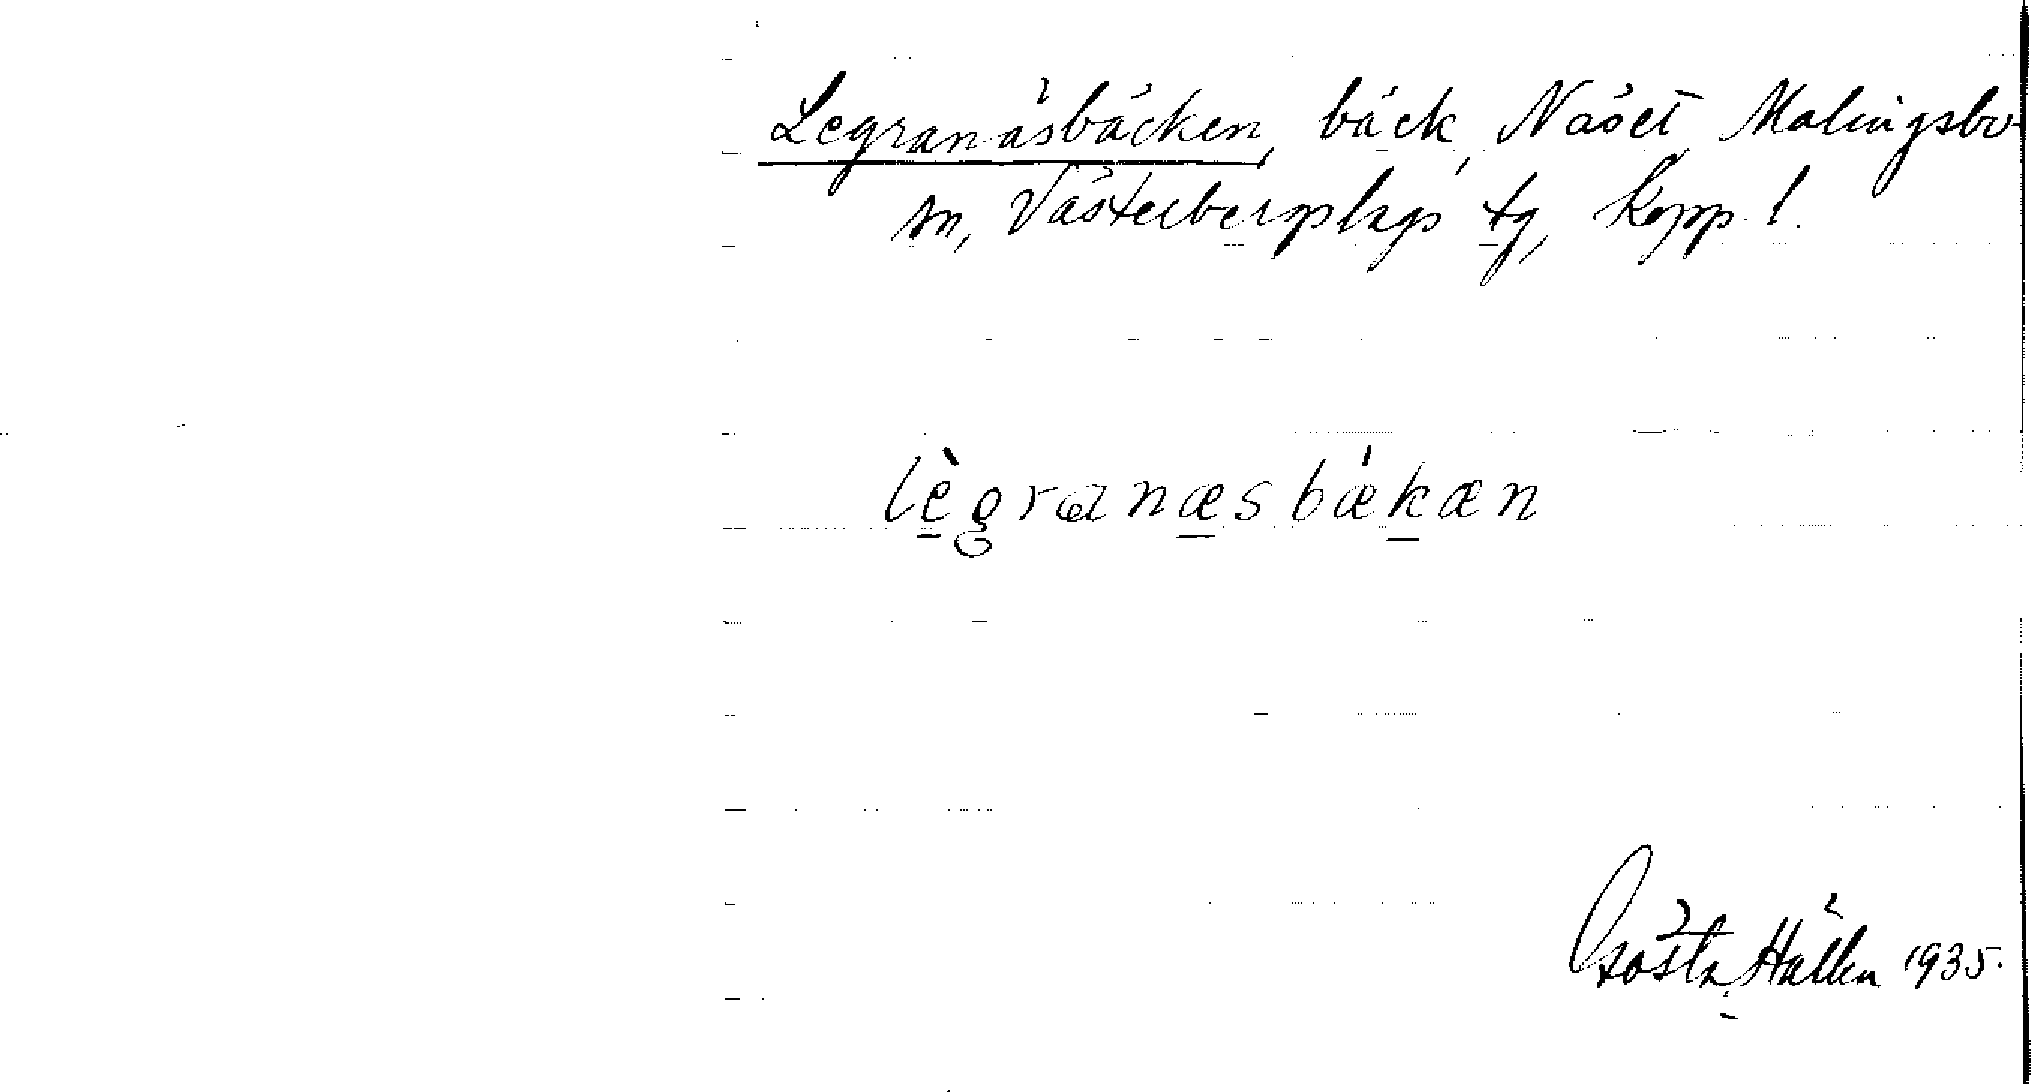 Legranäsbäcken, bäck, Näset Malingsbo
sn, Västerbergslags tg, Kopp. l.
lègranæsbǽkæn
Gösta Hállén 1935.